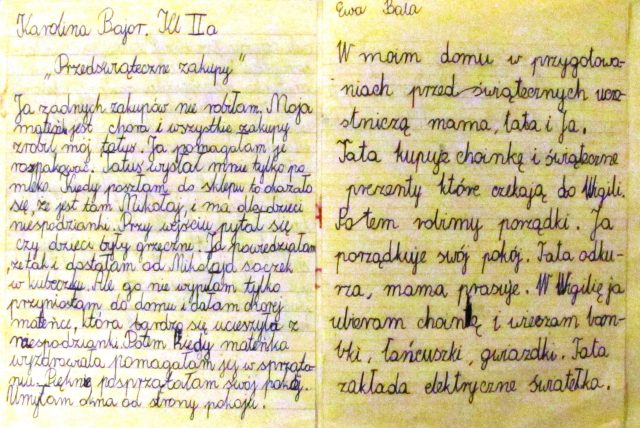 Karolina Bajor. Kl IIa
„Przedświąteczne zakupy"
Ja żadnych zakupów nie robiłam. Moja
mateńka jest chora i wszystkie zakupy
zrobił mój tatuś. Ja pomagałam je
rozpakować. Tatuś wysłał mnie tylko po
mleko. Kiedy poszłam do sklepu to okazało
się, że jest tam Mikołaj, i ma dla dzieci
niespodzianki. Przy wejściu pytał się
czy dzieci były grzeczne. Ja powiedziałam
, że tak i dostałam od Mikołaja soczek
w kubeczku. Ale go nie wypiłam tylko
przyniosłam do domu i dałam chorej
mateńce, która bardzo się ucieszyła z
niespodzianki. Potem kiedy mateńka
wyzdrowiała pomagałam jej w sprząta-
niu. Pięknie posprzątałam swój pokój.
Umyłam okna od strony pokoju.
Ewa Bala
W moim domu w przygotowa-
niach przed świątecznych ucze-
stniczą mama, tata i ja.
Tata kupuje choinkę i świąteczne
prezenty które czekają do Wigili.
Po tem robimy porządki. Ja
porządkuje swój pokój. Tata odku-
rza, mama prasuje. W Wigilię ja
ubieram choinkę i wieszam bom-
bki, łańcuszki, gwiazdki. Tata
zakłada elektryczne światełka.